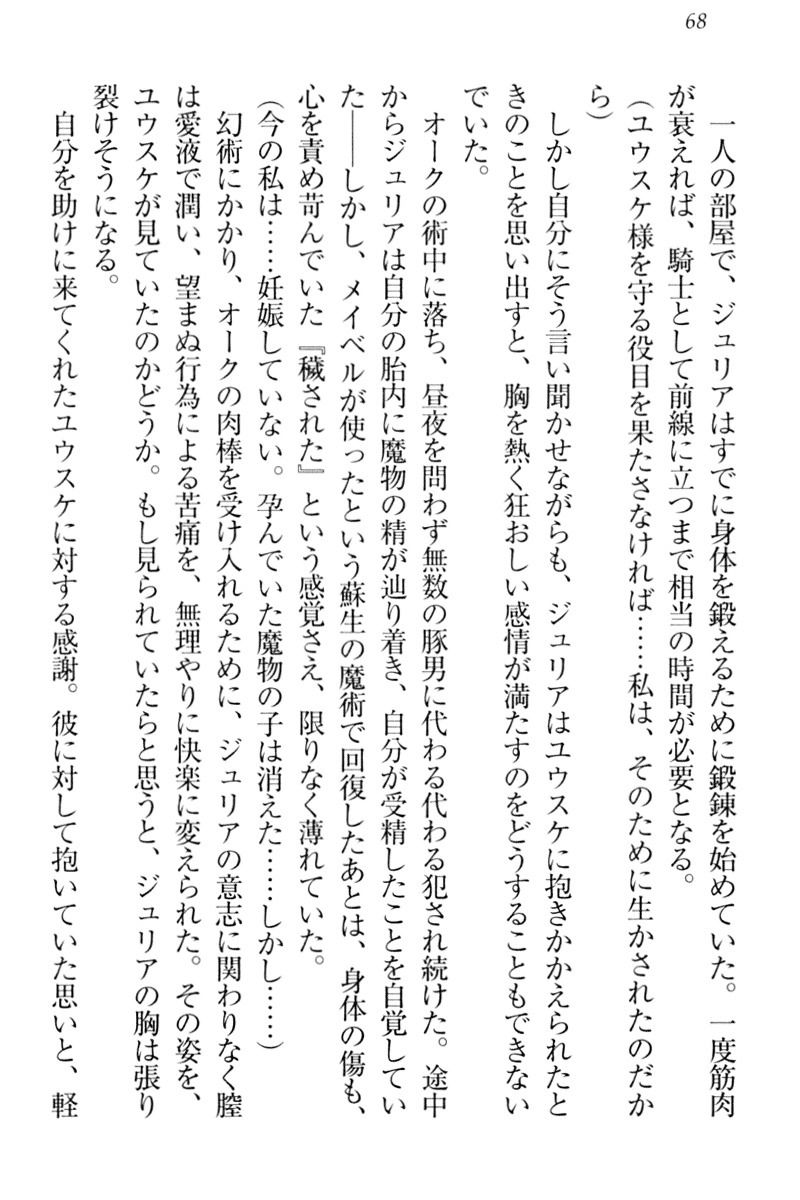 68
一人の部屋で、ジュリアはすでに身体を鍛えるために鍛錬を始めていた。一度筋肉
が衰えれば、騎士として前線に立つまで相当の時間が必要となる。
（ユウスケ様を守る役目を果たさなければ……私は、そのために生かされたのだか
ら）
しかし自分にそう言い聞かせながらも、ジュリアはユウスケに抱きかかえられたと
きのことを思い出すと、胸を熱く狂おしい感情が満たすのをどうすることもできない
でいた。
オークの術中に落ち、昼夜を問わず無数の豚男に代わる代わる犯され続けた。途中
からジュリアは自分の胎内に魔物の精が辿り着き、自分が受精したことを自覚してい
た――しかし、メイベルが使ったという蘇生の魔術で回復したあとは、身体の傷も、
心を責め苛んでいた『穢された』という感覚さえ、限りなく薄れていた。
（今の私は……妊娠していない。孕んでいた魔物の子は消えた……しかし……）
幻術にかかり、オークの肉棒を受け入れるために、ジュリアの意志に関わりなく膣
は愛液で潤い、望まぬ行為による苦痛を、無理やりに快楽に変えられた。その姿を、
ユウスケが見ていたのかどうか。もし見られていたらと思うと、ジュリアの胸は張り
裂けそうになる。
自分を助けに来てくれたユウスケに対する感謝。彼に対して抱いていた思いと、軽